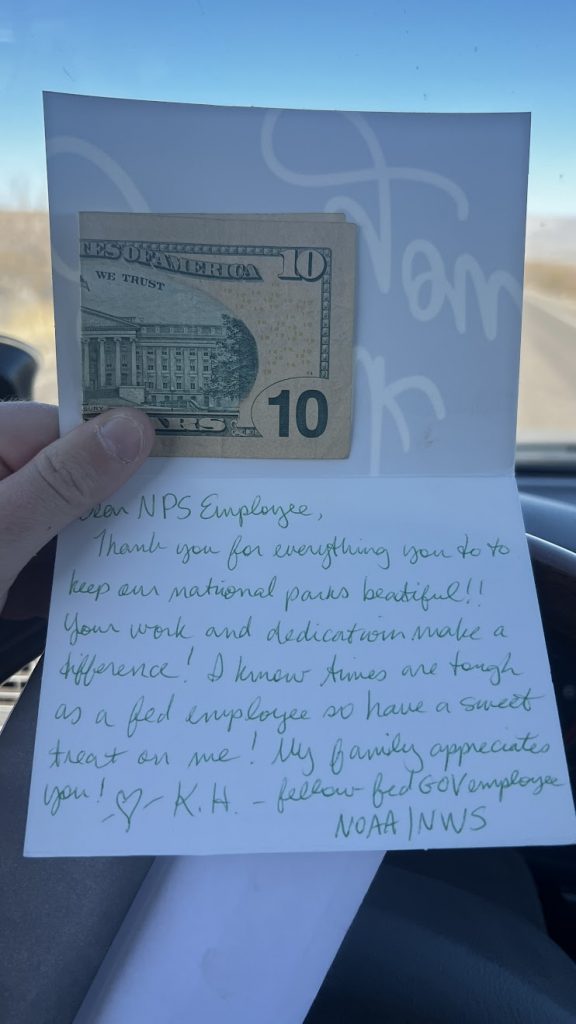 TES OF AMERICA 10
WE TRUST
ARS 10
Dear NPS Employee,
Thank you for everything you do to
keep our national parks beatiful!!
Your work and dedication make a
difference! I know times are tough
as a fed employee so have a sweet
treat on me! My family appreciates
you! ♡ - K.H. - fellow fed GOV employee
NOAA/NWS